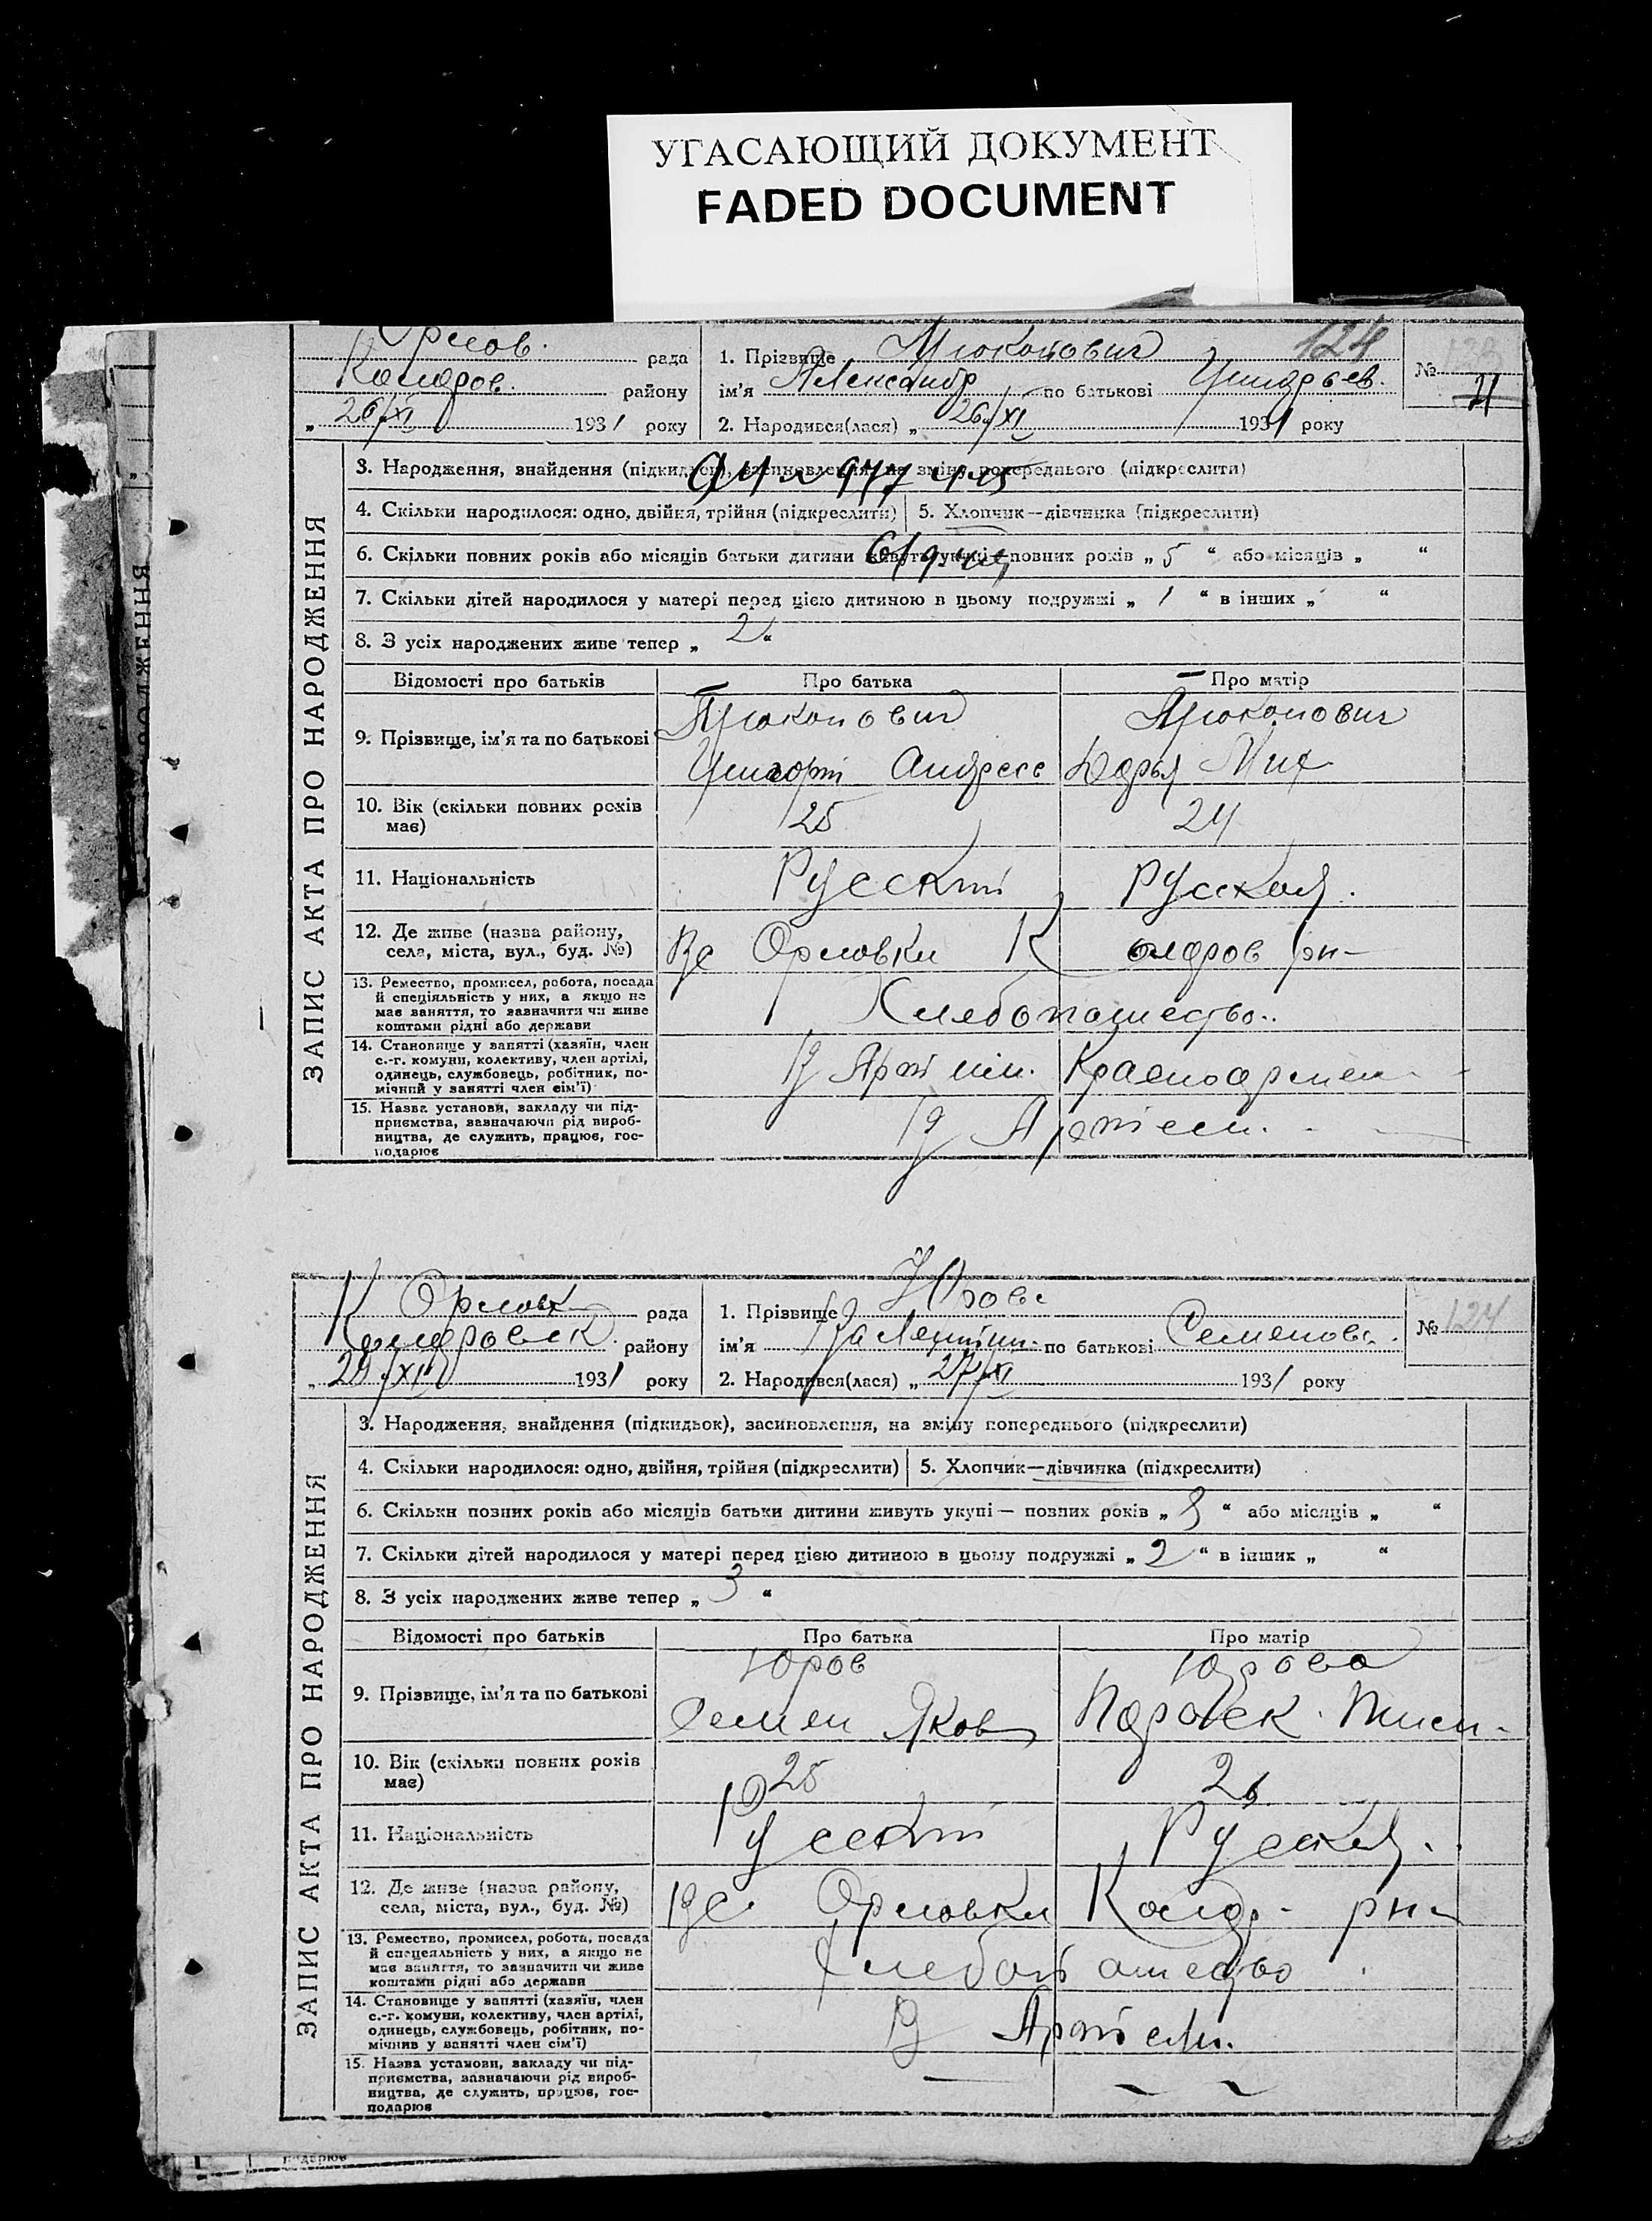 УГАСАЮЩИЙ ДОКУМЕНТ
FADED DOCUMENT
Орлов. рада
района району
„ 26/XI 1931 року
1. Прізвище 124
ім'я Александр по батькові
2. Народився(лася) „ 26/XI 1931 року
№
ЗАПИС АКТА ПРО НАРОДЖЕННЯ
3. Народження, знайдення (підкидьок), засиновлення, на зміну попереднього (підкреслити)
4. Скільки народилося: одно, двійня, трійня (підкреслити)
5. Хлопчик—дівчинка (підкреслити)
6. Скільки повних років або місяців батьки дитини живуть укупі — повних років „ 5 “ або місяців „ “
7. Скільки дітей народилося у матері перед цією дитиною в цьому подружжі „ 1 “ в інших „ “
8. З усіх народжених живе тепер „ 2 “
Відомості про батьків Про батька Про матір
9. Прізвище, ім'я та по батькові
Дарья Мих
10. Вік (скільки повних років має) 25 24
11. Національність Русский Русская.
12. Де живе (назва району, села, міста, вул., буд. №) Вс Орловки рн-
13. Ремество, промисел, робота, посада
й спеціяльність у них, а якщо не
має заняття, то зазначити чи живе
коштами рідні або держави
Хлебопашество..
14. Становище у занятті (хазяїн, член
с.-г. комуни, колективу, член артілі,
одинець, службовець, робітник, по-
мічний у занятті член сім'ї)
В Артели.
15. Назва установи, закладу чи під-
приємства, зазначаючи рід вироб-
ництва, де служить, працює, гос-
подарює
В Артели.
Орловк рада
району
„ 29/XI 1931 року
1. Прізвище Юрова
ім'я Валентин. по батькові Семеновн.
2. Народився(лася) „ 27/XI 1931 року
№ 124
ЗАПИС АКТА ПРО НАРОДЖЕННЯ
3. Народження, знайдення (підкидьок), засиновлення, на зміну попереднього (підкреслити)
4. Скільки народилося: одно, двійня, трійня (підкреслити)
5. Хлопчик—дівчинка (підкреслити)
6. Скільки повних років або місяців батьки дитини живуть укупі — повних років „ “ або місяців „ “
7. Скільки дітей народилося у матері перед цією дитиною в цьому подружжі „ 2 “ в інших „ “
8. З усіх народжених живе тепер „ 3 “
Відомості про батьків Про батька Про матір
9. Прізвище, ім'я та по батькові
Юров Юрова
Семен Яков
10. Вік (скільки повних років має) 25 26
11. Національність Русский Русская.
12. Де живе (назва району, села, міста, вул., буд. №) Вс. Орловки рн-
13. Ремество, промисел, робота, посада
й спецеяльність у них, а якщо не
має заняття, то зазначити чи живе
коштами рідні або держави
Хлебопашество
14. Становище у занятті (хазяїн, член
с.-г. комуни, колективу, член артілі,
одинець, службовець, робітник, по-
мічнив у занятті член сім'ї)
В Артели.
15. Назва установи, закладу чи під-
приємства, зазначаючи рід вироб-
ництва, де служить, працює, гос-
подарює
подарює